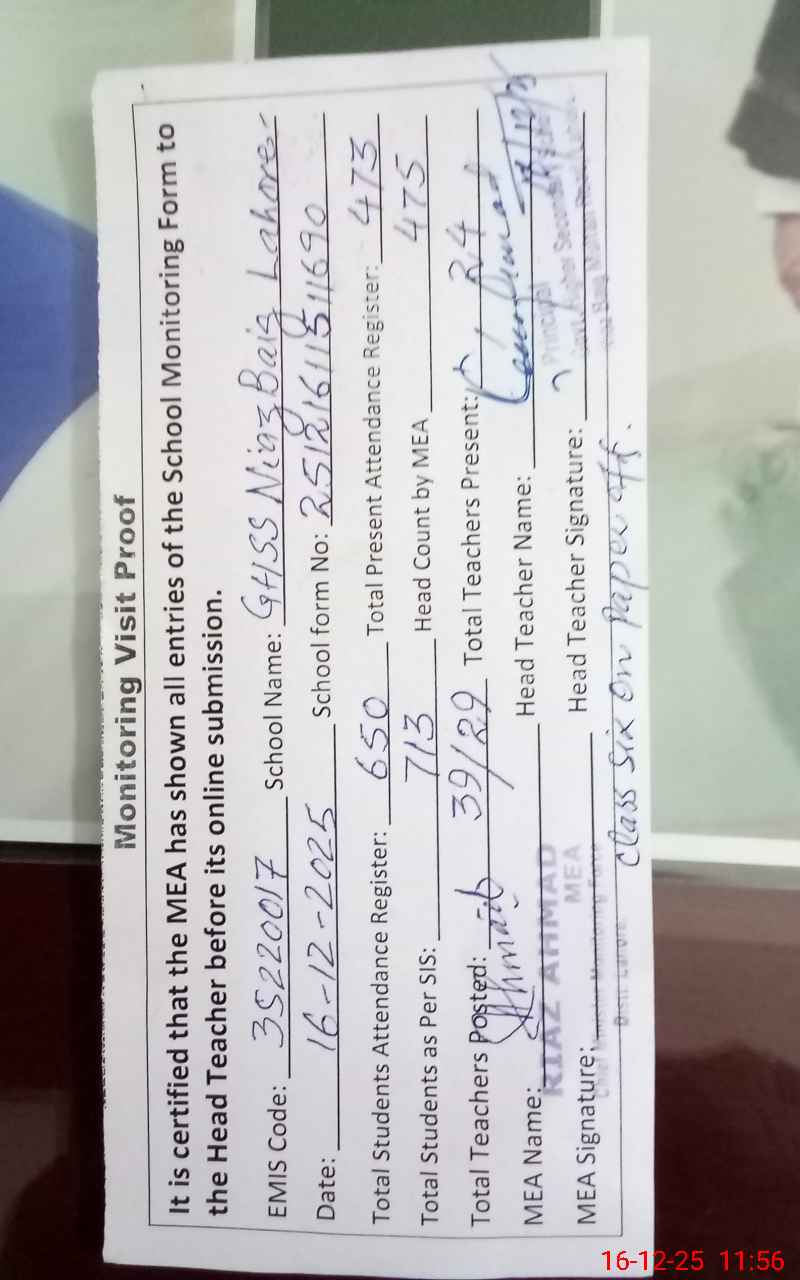 Monitoring Visit Proof
It is certified that the MEA has shown all entries of the School Monitoring Form to
the Head Teacher before its online submission.
EMIS Code: 35220017 School Name: GHSS Niaz Baig Lahore.
Date: 16-12-2025 School form No: 2512161151169 0
Total Students Attendance Register: 650 Total Present Attendance Register: 473
Total Students as Per SIS: 713 Head Count by MEA 475
Total Teachers Posted: 39/29 Total Teachers Present: 24
MEA Name: RIAZ AHMAD Head Teacher Name:
MEA
MEA Signature: Head Teacher Signature:
Chief Minister Monitoring Force
Distt. Lahore
Principal
Govt. Higher Secondary
Niaz Baig Multan Road
Class six on paper off.
16-12-25 11:56